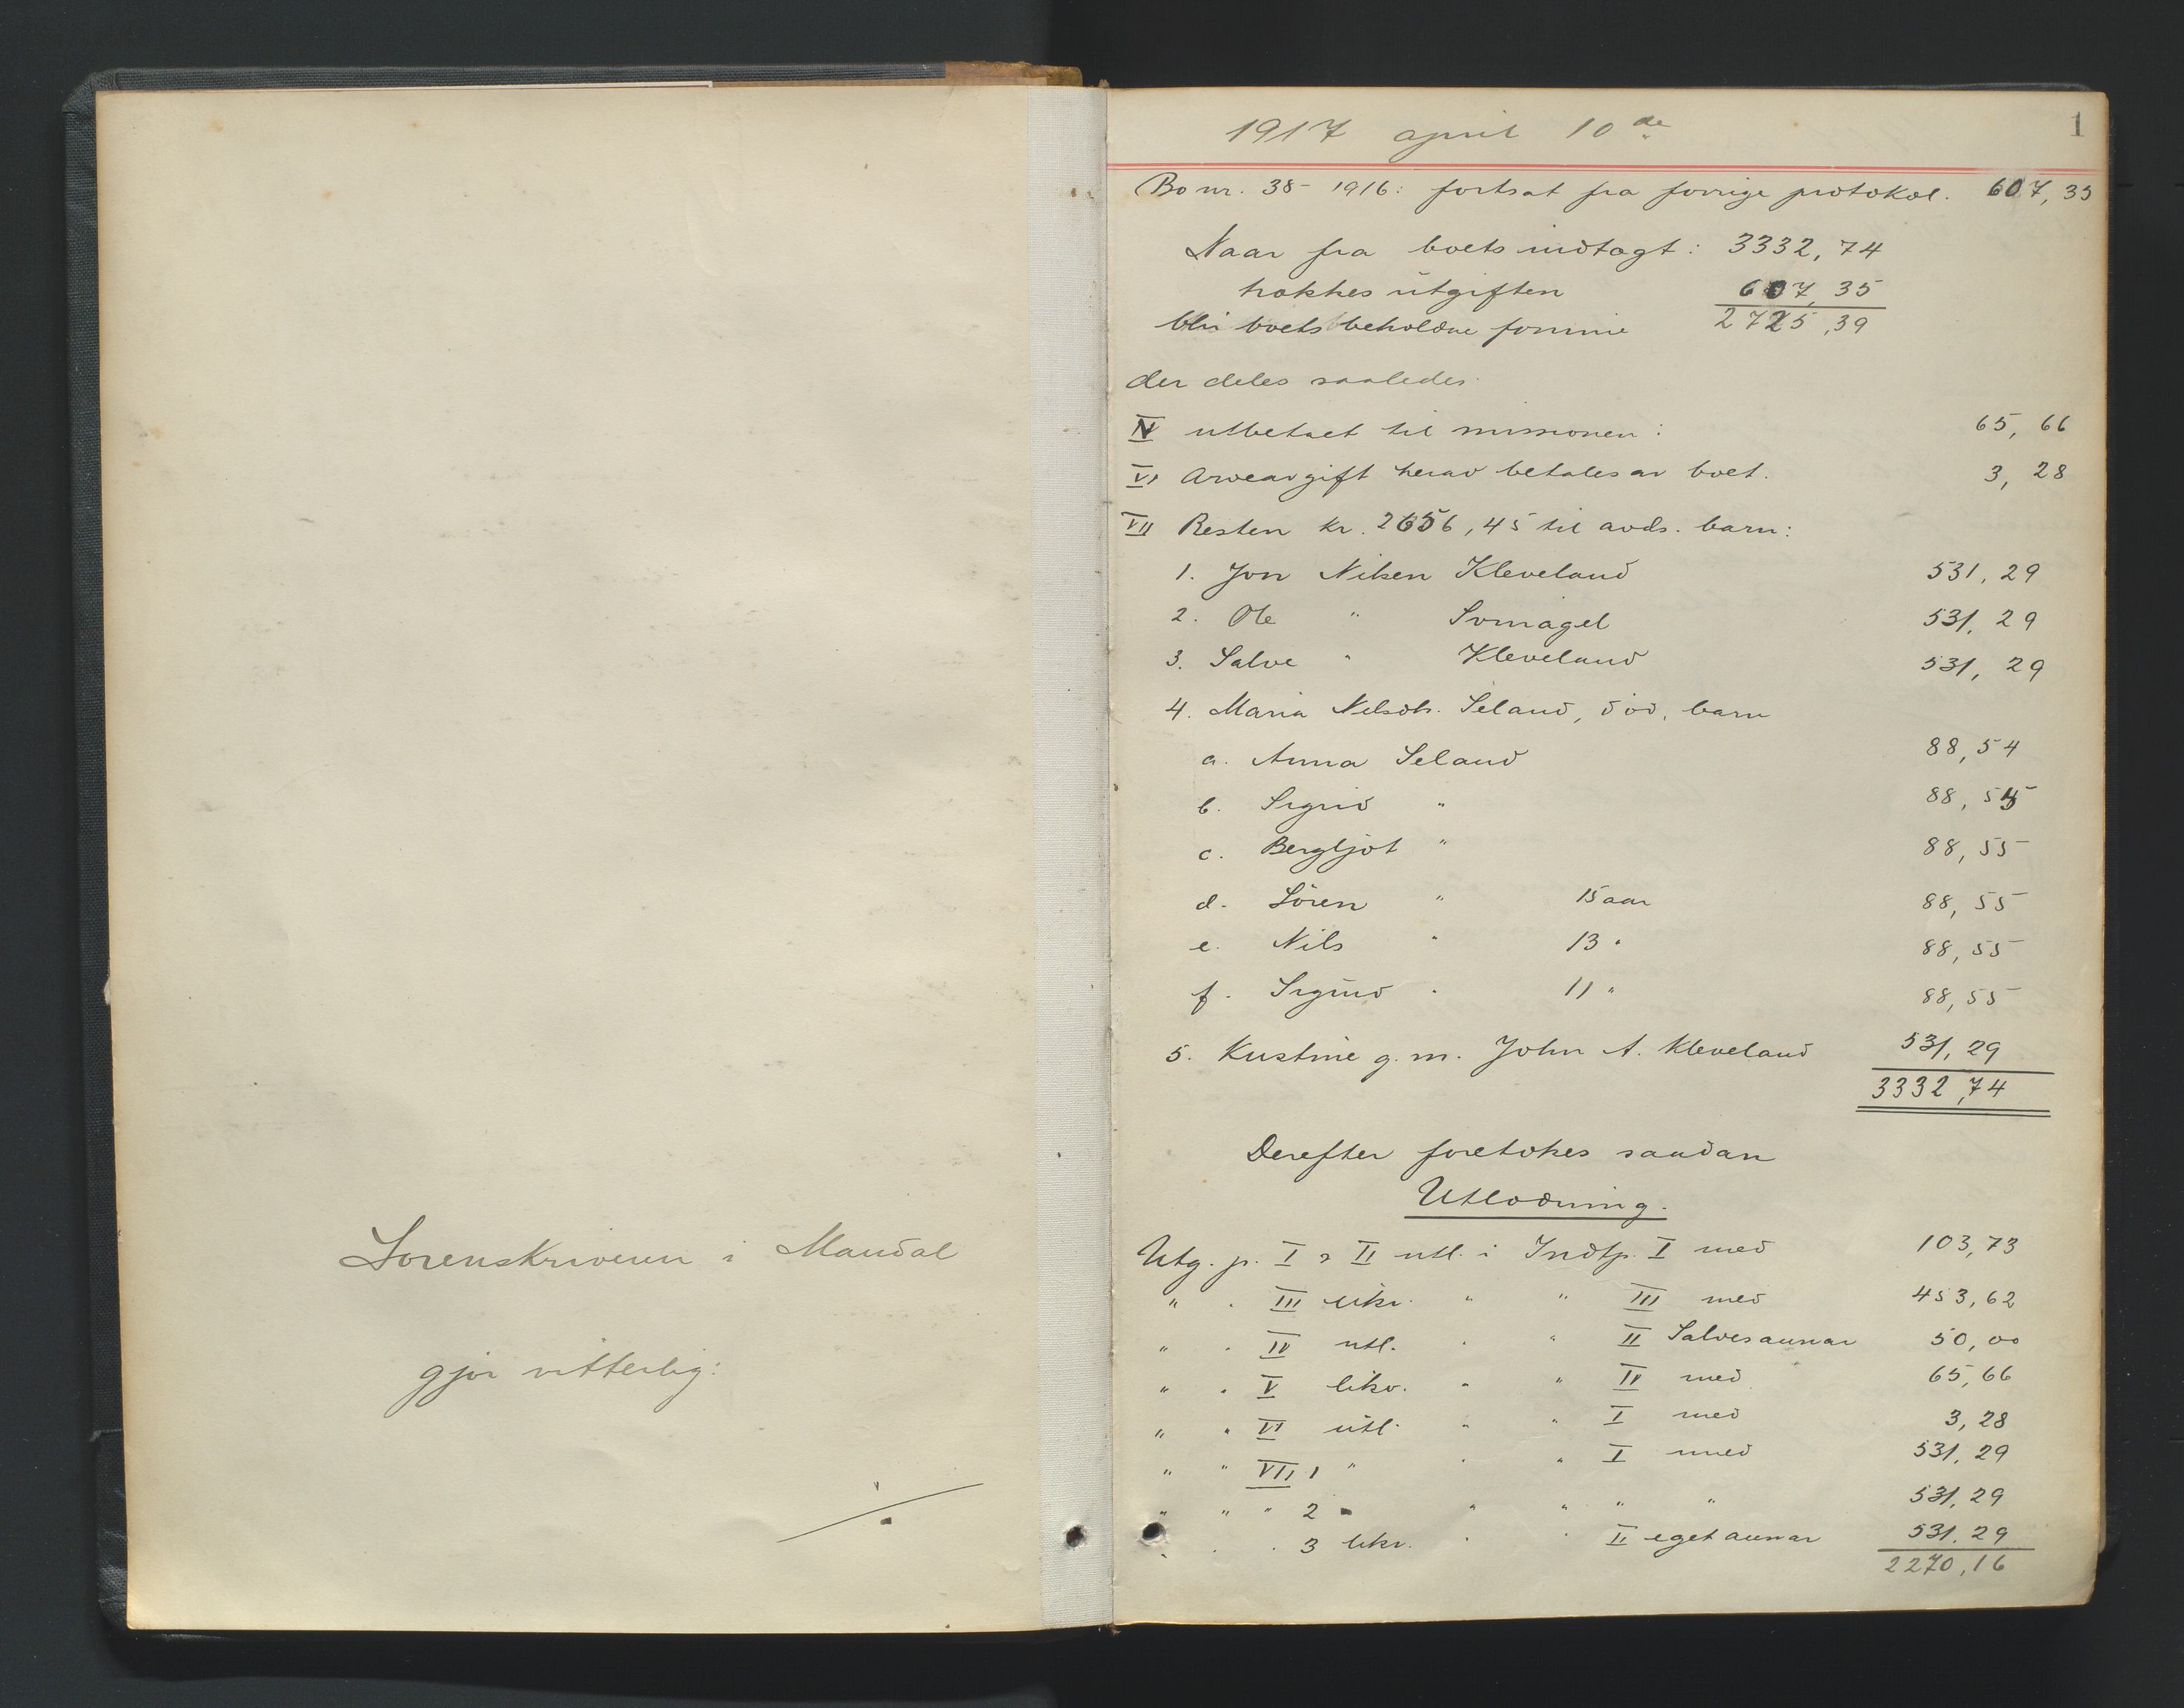 Sorenskriveren i Mandal
gjør vitterlig:
1
1917 april 10de
Bo nr. 38 - 1916: fortsat fra forrige protokol. 607,35
Naar fra boets indtægt: 3332,74
trækkes utgiften 607,35
blir boets beholdne formue 2725,39
der deles saaledes:
V utbetalt til missionen: 65,66
VI Arveavgift herav betales av boet. 3,28
VII Resten kr. 2656,45 til avds. barn:
1. Jon Nilsen Kleveland 531,29
2. Ole " 531,29
3. Salve " Kleveland 531,29
4. Maria Nilsdtr. Seland, død, barn
a. Anna Seland 88,54
b. Sigrid " 88,55
c. Bergljot " 88,55
d. Sören " 15 aar 88,55
e. Nils " 13 " 88,55
f. Sigurd " 11 " 88,55
5. Kristine g. m. John A. Kleveland 531,29
3332,74
Derefter foretokes saadan
Utlodning.
Utg. p. I & II utl. i Indtp. I med 103,73
" " III likv. " " III med 453,62
" " IV utl. " " II Salves annar 50,00
" " V likv. " " IV med 65,66
" " VI utl. " " I med 3,28
" " VII 1 " " " I med 531,29
" " " 2 " " " " " 531,29
" " " 3 likv. " " II eget annar 531,29
2270,16